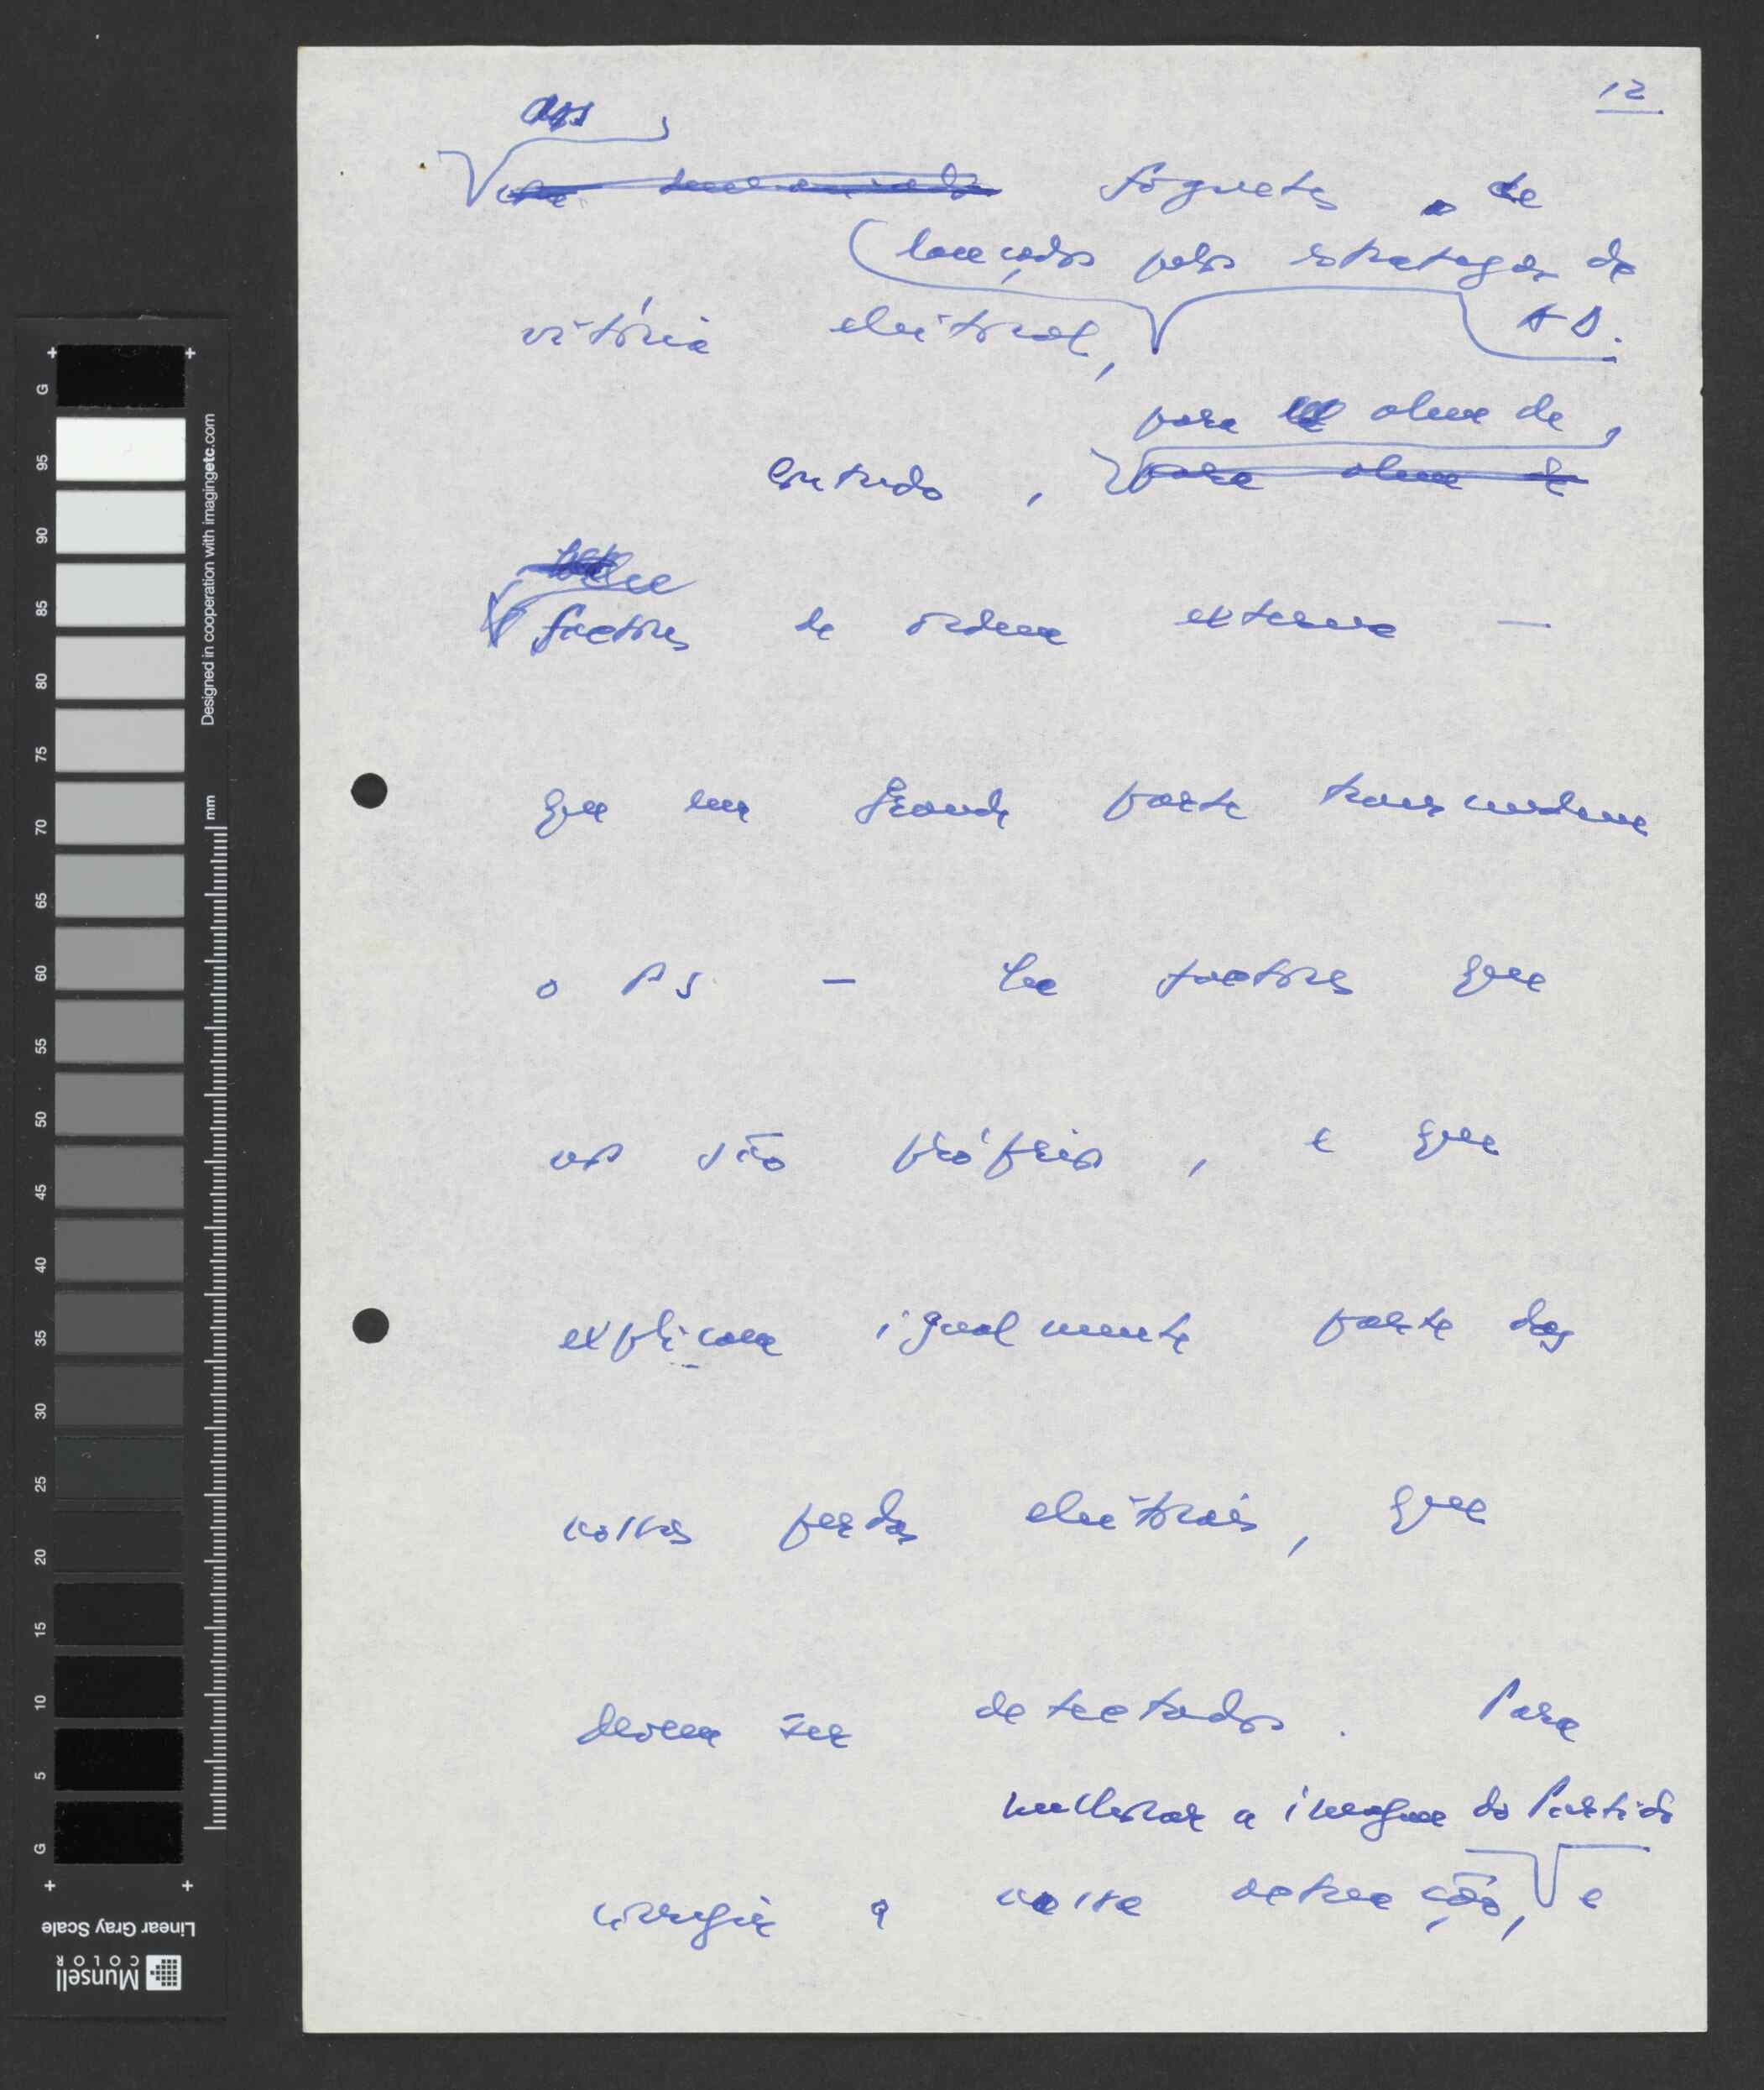 12
aos
foguetes de
lançados pelos estrategas da
vitória eleitoral,
AD.
para além de
Contudo, para além de
factores de ordem externa —
que em grande parte transcendem
o PS — há factores que
nos são próprios, e que
explicam igualmente parte das
nossas perdas eleitorais, que
devem ser detectados. Para
melhorar a imagem do Partido
corrigir a nossa actuação, e
G 95 90 85 80 75 70 65 60 55 50 45 40 35 30 25 20 15 10 5 G
Designed in cooperation with imagingetc.com
mm
Linear Gray Scale
Munsell
COLOR